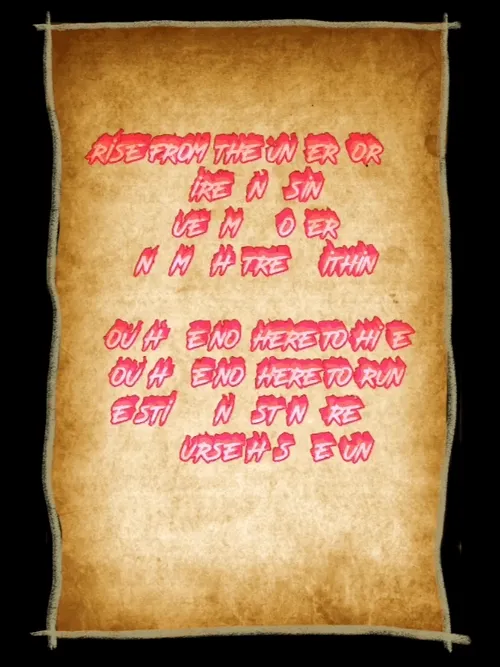 RISE FROM THE UN ER OR
IRE N SIN
UE M O ER
N M H TRE ITHIN
OU H E NO HERE TO HI E
OU H E NO HERE TO RUN
E STI N ST N RE
URSE H S E UN